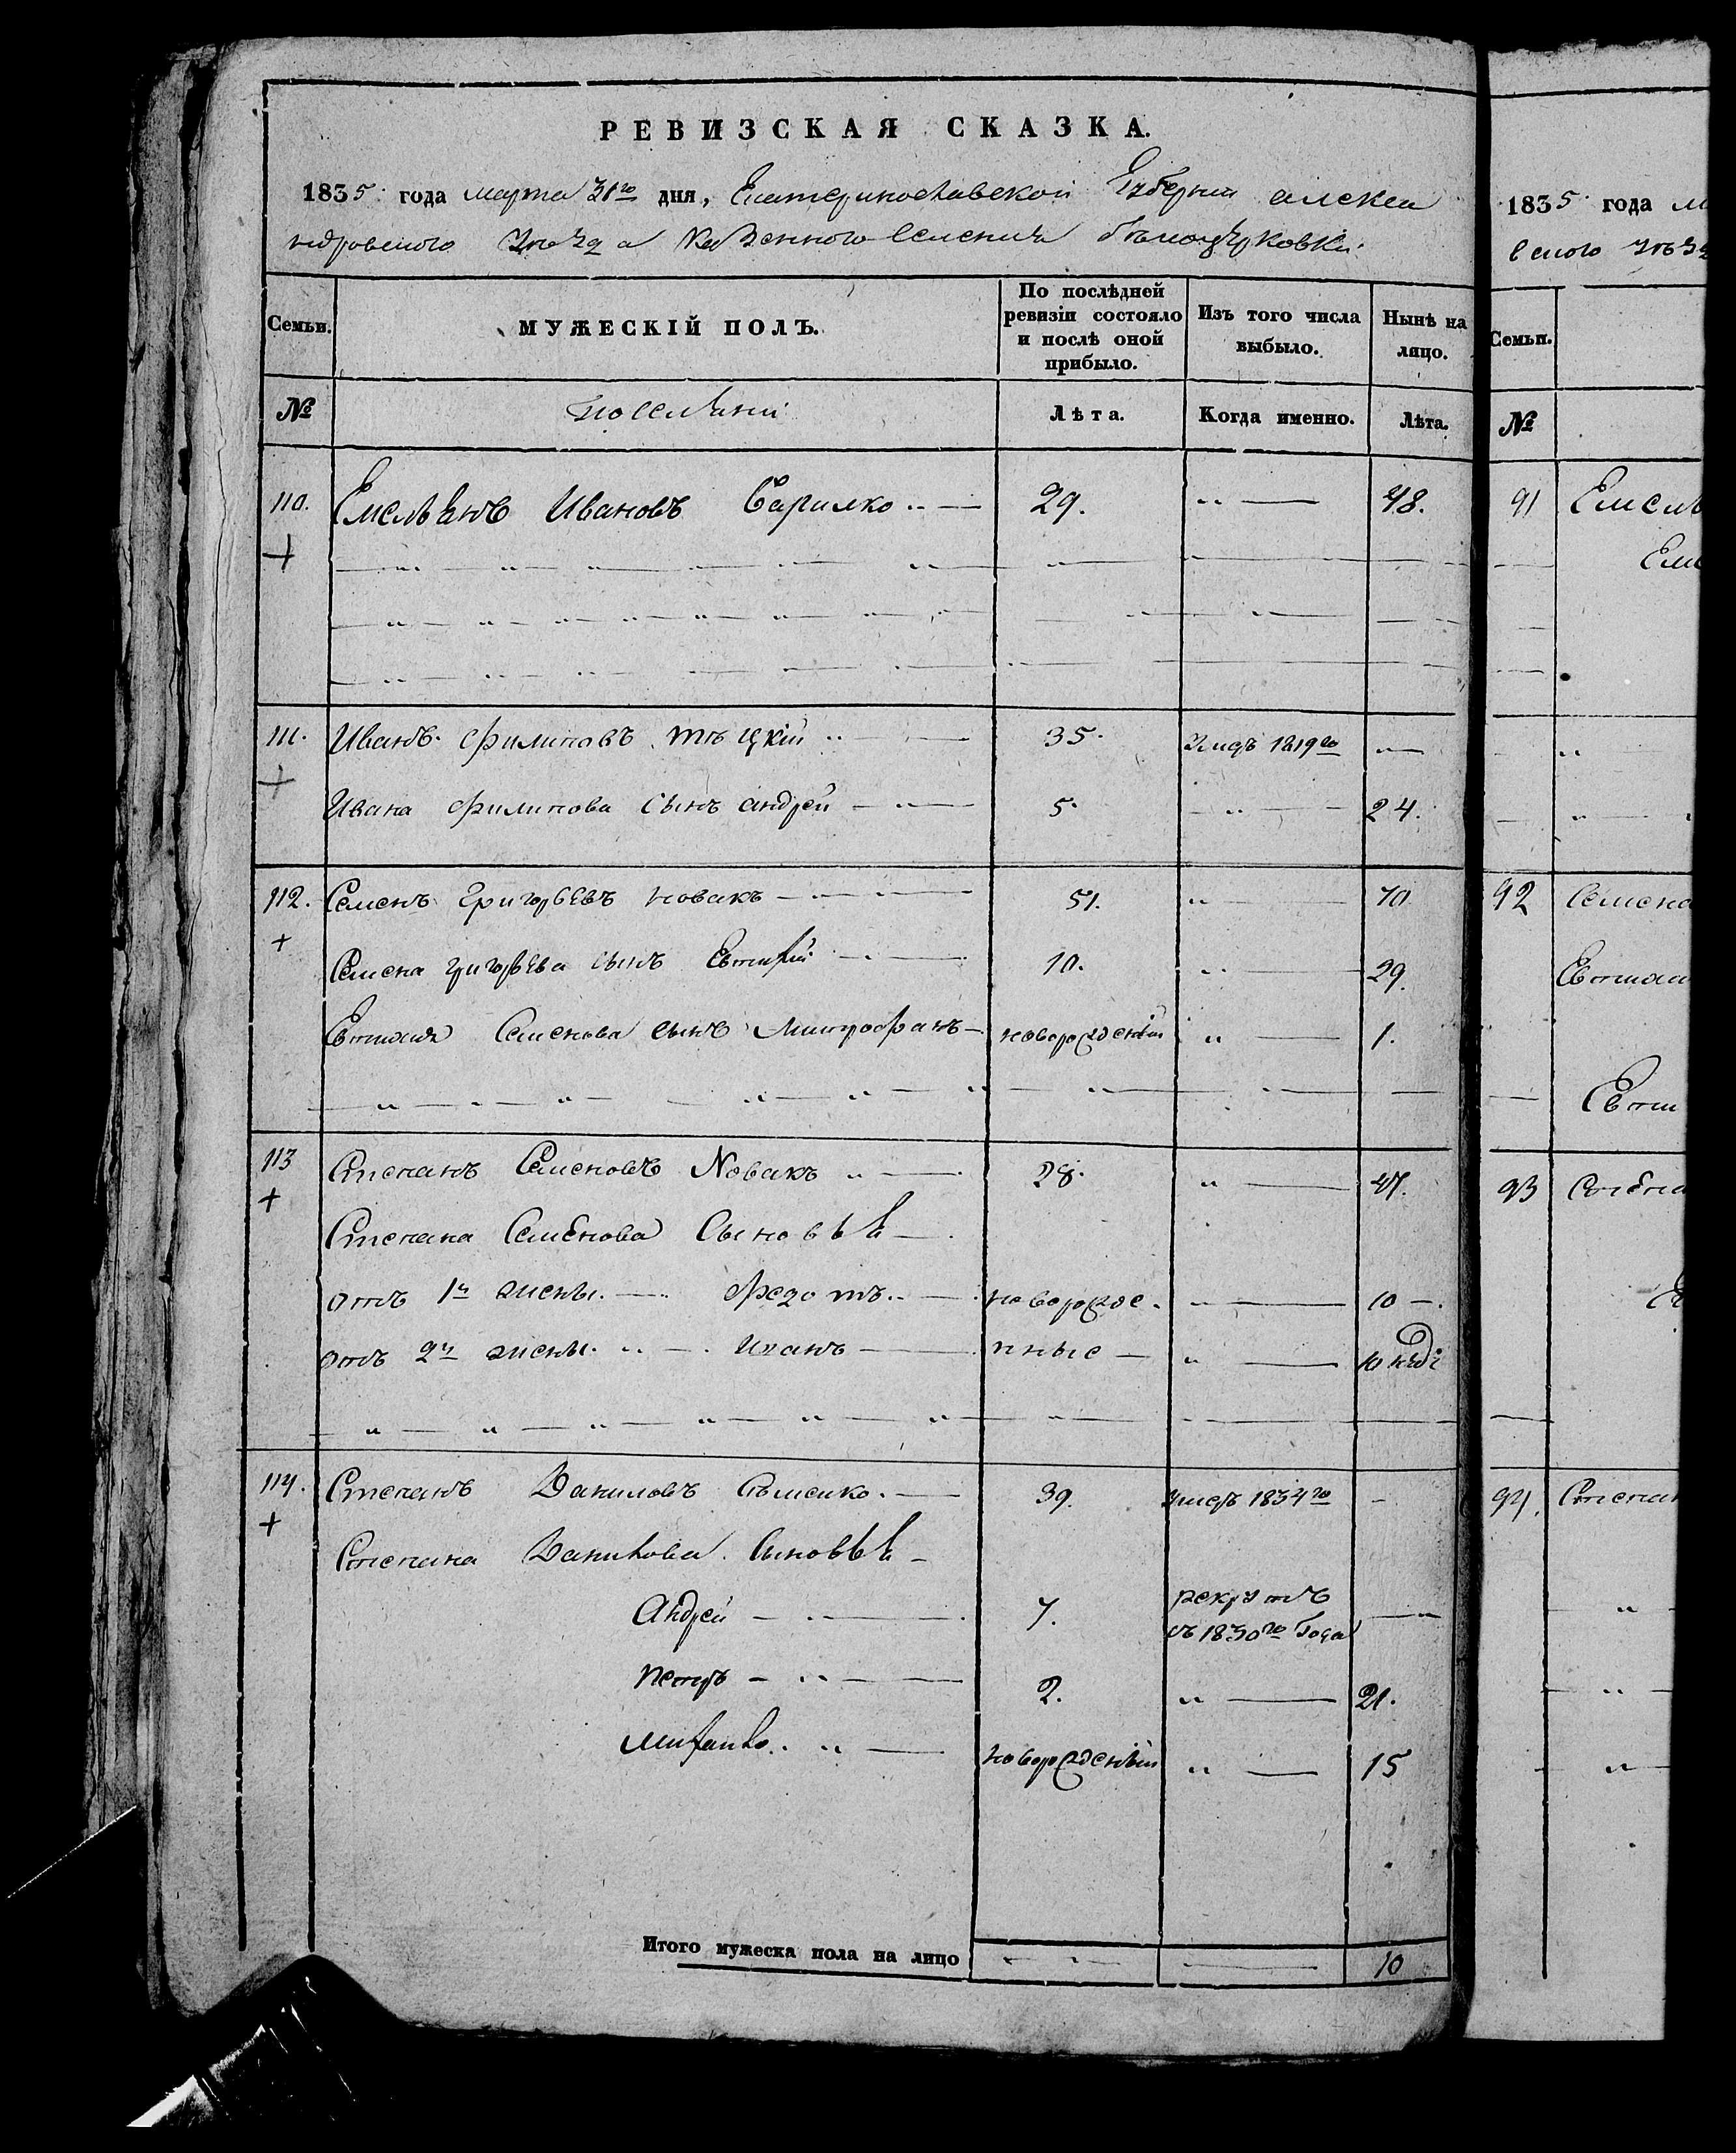 РЕВИЗСКАЯ СКАЗКА.
1835 года марта 31го дня, Екатеринославской Губернии алекса
ндровского уѣзда казенного селения бѣлоцерковки
Семьи. МУЖЕСКІЙ ПОЛЪ. По послѣдней ревизіи состояло и послѣ оной прибыло. Изъ того числа выбыло. Нынѣ на лицо.
№ Лѣта. Когда именно. Лѣта.
110. Емельянъ Ивановъ 29. 48.
111. Иванъ Филиповъ 35. умеръ 1819го
Ивана Филипова сынъ андрей 5. 24.
112. Семенъ Григорьевъ новакъ 51. 70
Семена григорьева сынъ Евтифій 10. 29.
Евтихия Семенова сынъ Митрофанъ новорожденный 1.
113 Степанъ Семеновъ Новакъ 28. 47.
Степана Семенова Сыновья
отъ 1й жены. Федотъ новорожде- 10
отъ 2й жены. Иванъ нные 10 недѣ
114. Степанъ Даниловъ 39. умеръ 1834го
Степана Данилова Сыновья
Андрей 7. рекрутъ
съ 1830го Года
петръ 2. 21.
михайло новорожденный 15
Итого мужеска пола на лицо 10
1835 года м
Семьи.
№
91 Емель
Еме
92 Семена
Евтихи
Евти
93 Степа
94. Степан